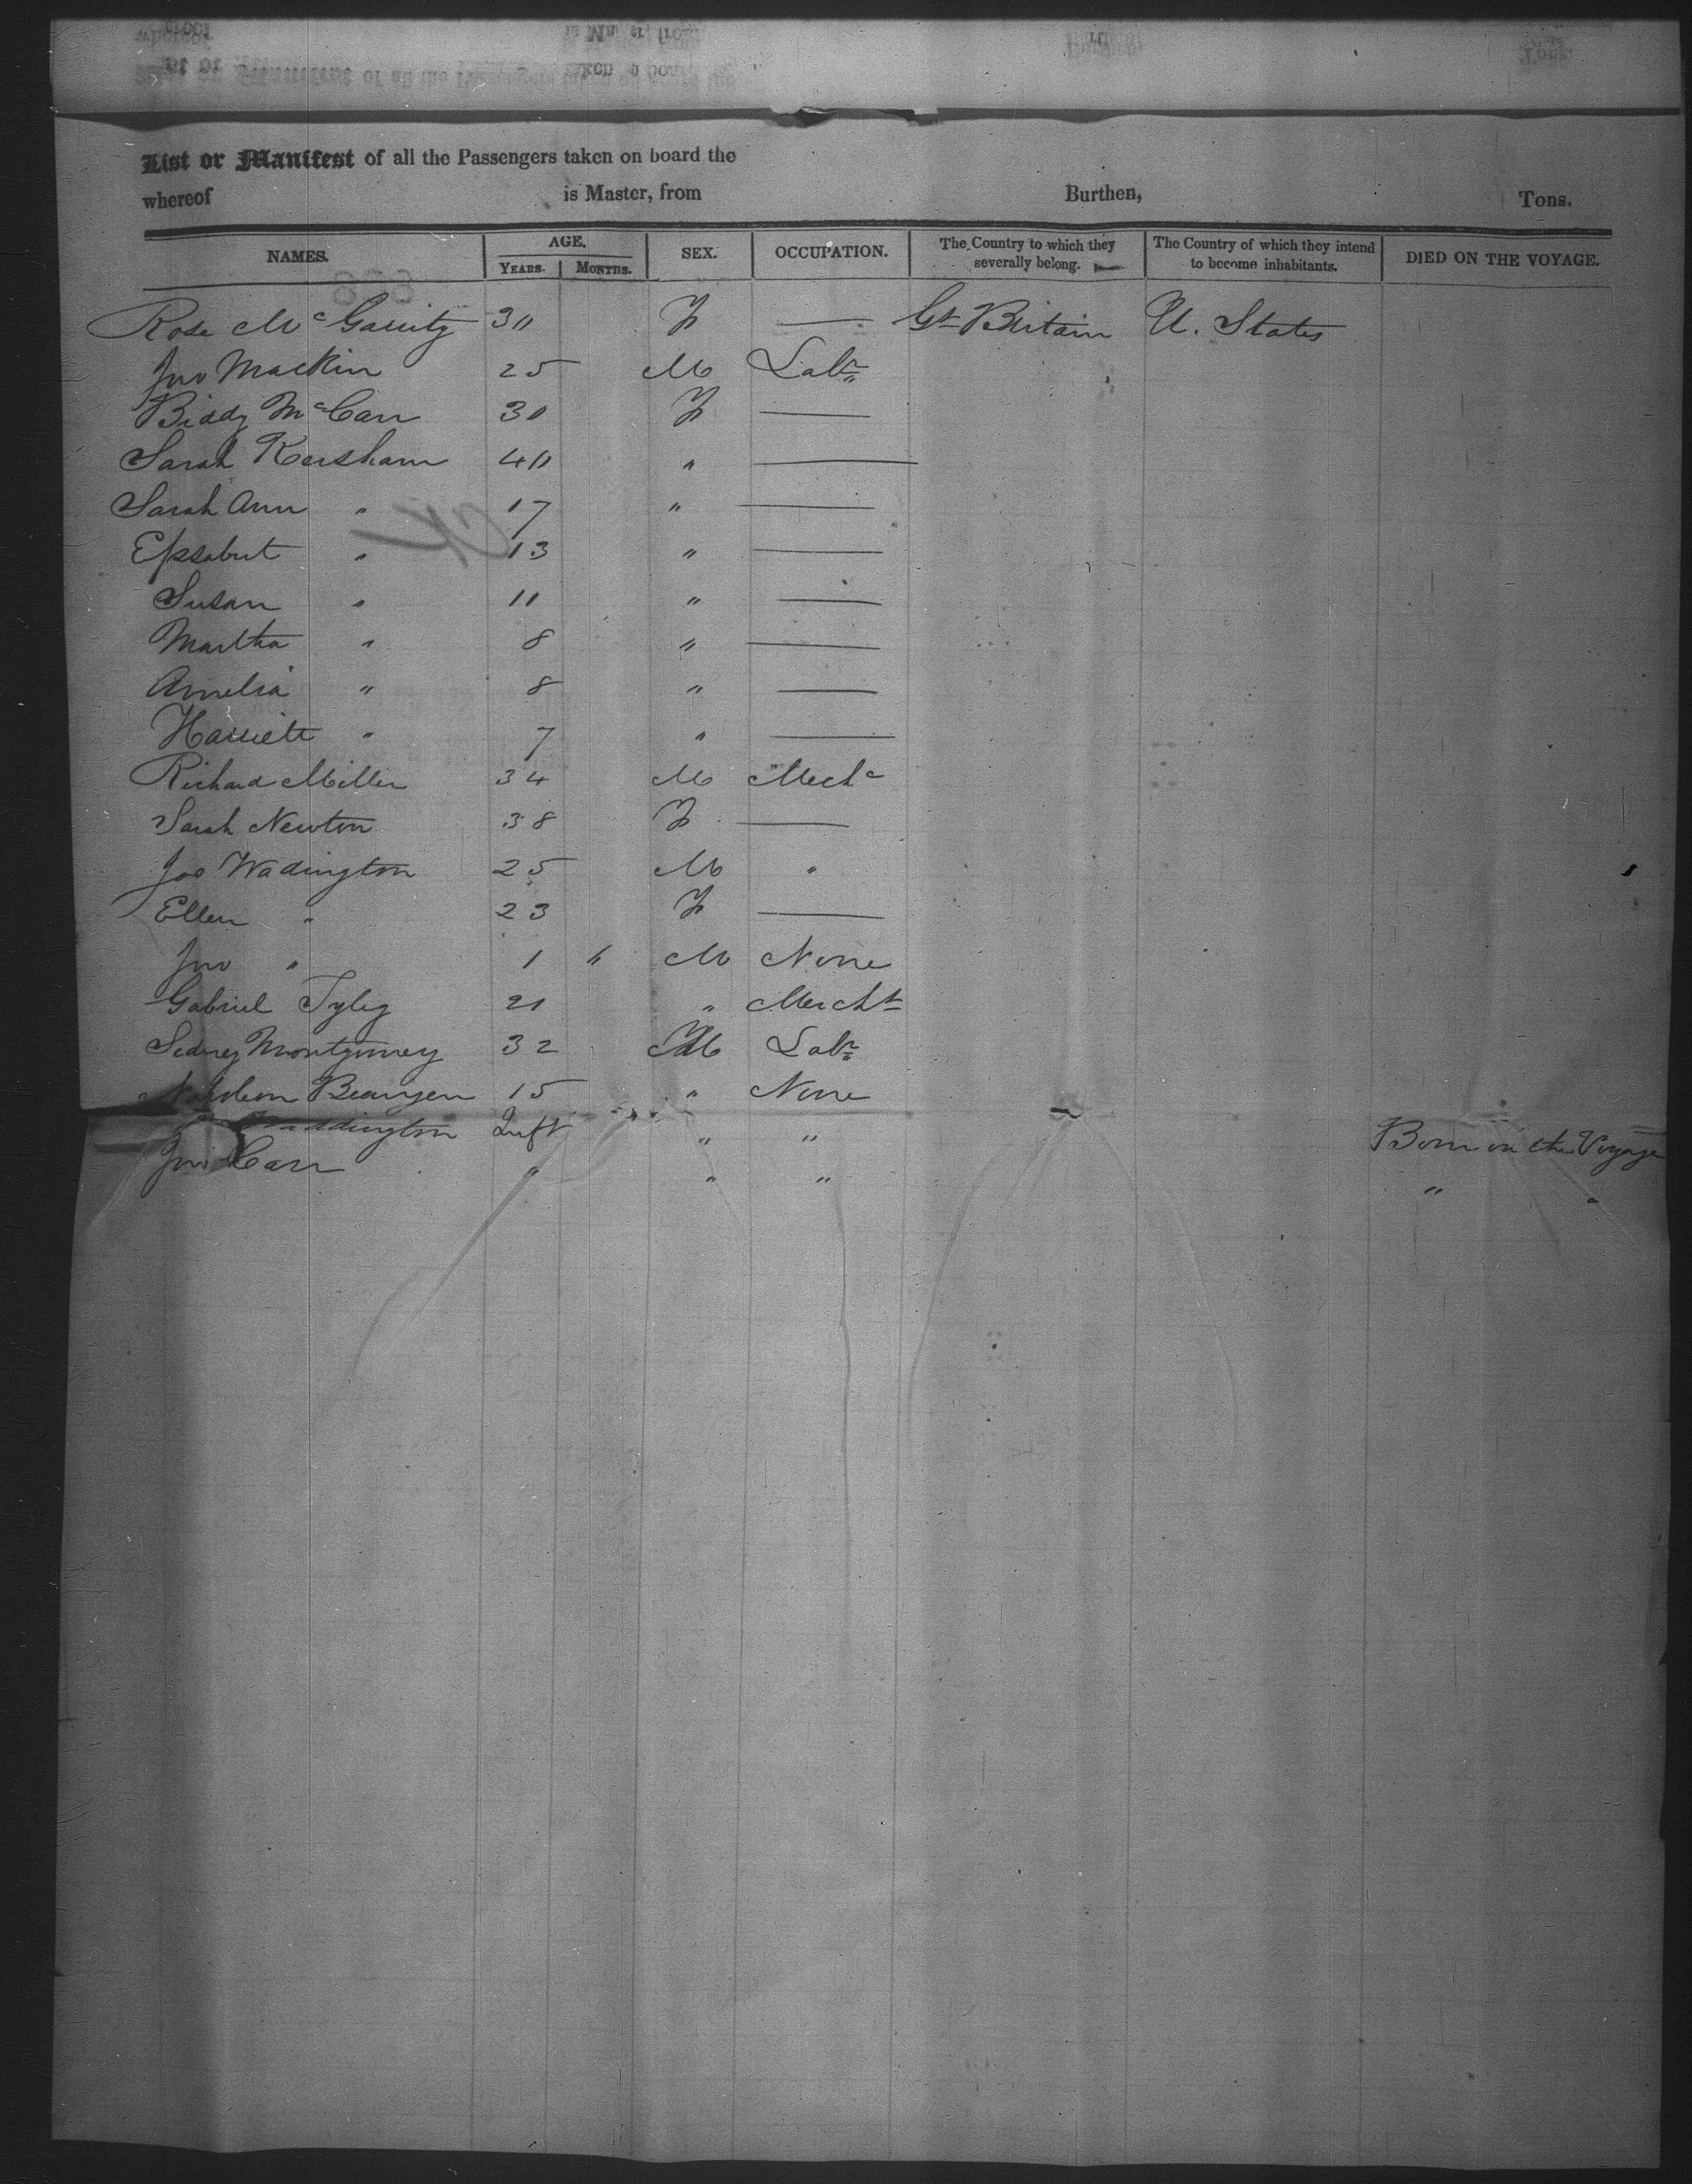 List or Manifest of all the Passengers taken on board the
whereof is Master, from Burthen, Tons.
NAMES. AGE. SEX. OCCUPATION. The Country to which they severally belong. The Country of which they intend to become inhabitants. DIED ON THE VOYAGE.
YEARS. MONTHS.
Rose McGarrity 30 F — Gt Britain U. States
Jno Mackin 25 M Labr
Biddy McCarr 30 F —
Sarah Kersham 40 " —
Sarah Ann " 17 " —
" 13 " —
Susan " 11 " —
Martha " 8 " —
Amelia " 8 " —
Harriett " 7 " —
Richard Miller 34 M Mechc
Sarah Newton 38 F —
Joe Wadington 25 M "
Ellen " 23 F —
Jno " 1 " M None
Gabriel Tyley 21 " Mercht
Sidney Montgomery 32 M Labr
Napoleon 15 " None
Waddington Inft " " Born on the Voyage
Jno Carr " " " " "